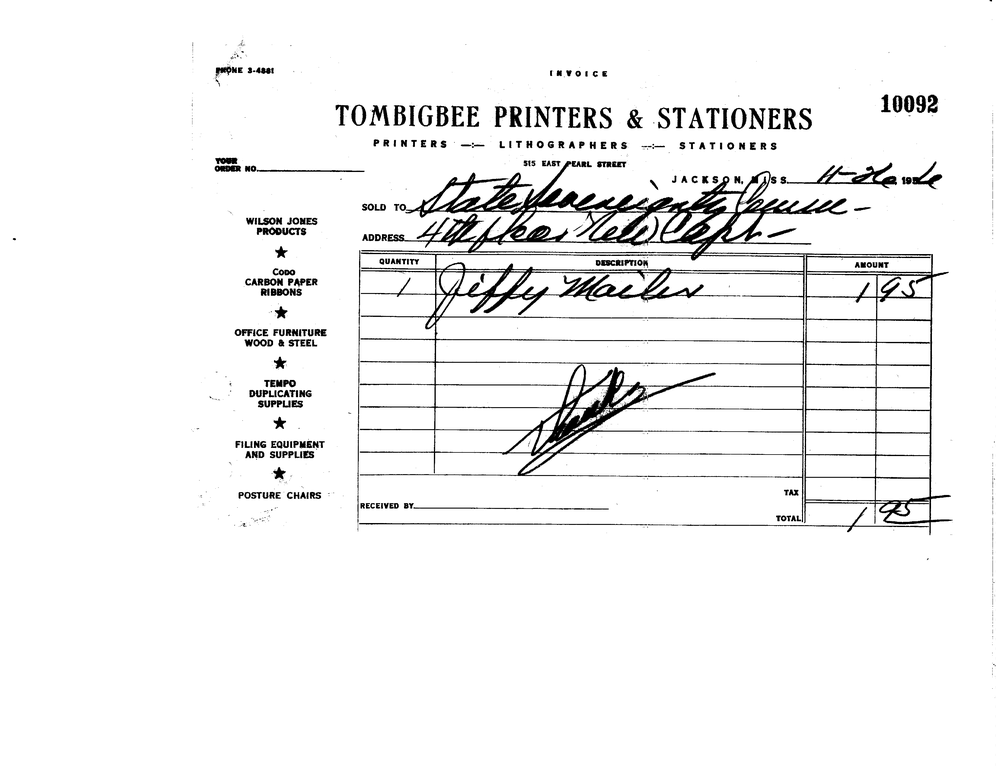 PHONE 3-4881
INVOICE
10092
TOMBIGBEE PRINTERS & STATIONERS
PRINTERS —:— LITHOGRAPHERS —:— STATIONERS
515 EAST PEARL STREET
YOUR
ORDER NO.
JACKSON, MISS. 11-26 195
SOLD TO State Sovereignty Comm-
ADDRESS 4th floor New Capt-
WILSON JONES
PRODUCTS
★
CODO
CARBON PAPER
RIBBONS
★
OFFICE FURNITURE
WOOD & STEEL
★
TEMPO
DUPLICATING
SUPPLIES
★
FILING EQUIPMENT
AND SUPPLIES
★
POSTURE CHAIRS
QUANTITY DESCRIPTION AMOUNT
1 Jiffy Mailer 1 95
Thanks
TAX
RECEIVED BY
TOTAL 1 95